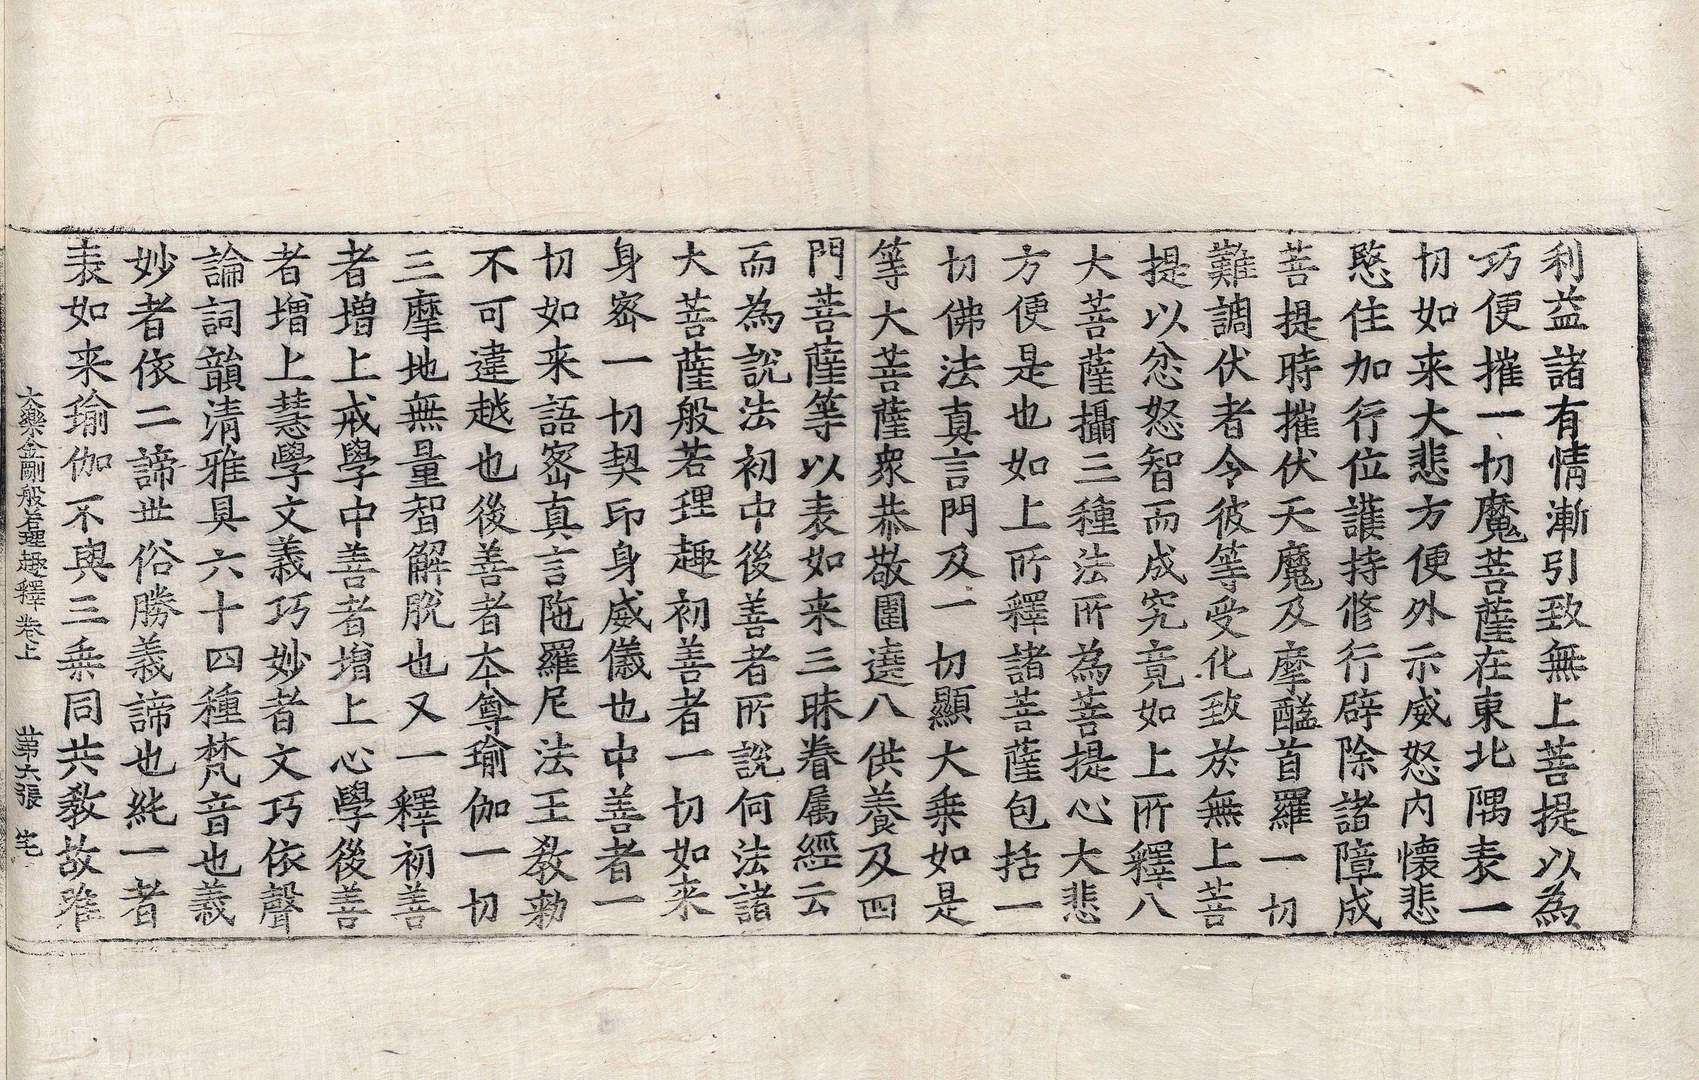 利益諸有情漸引致無上菩提以為
巧便摧一切魔菩薩在東北隅表一
切如来大悲方便外示威怒內懷悲
愍住加行位護持修行辟除諸障成
菩提時摧伏天魔及摩醯首羅一切
難調伏者令彼等受化致於無上菩
提以忿怒智而成究竟如上所釋八
大菩薩攝三種法所為菩提心大悲
方便是也如上所釋諸菩薩包括一
切佛法真言門及一切顯大乗如是
等大菩薩衆恭敬圍遶八供養及四
門菩薩等以表如来三昧眷属經云
而為說法初中後善者所說何法諸
大菩薩般若理趣初善者一切如来
身密一切契印身威儀也中善者一
切如来語密真言陁羅尼法王教勑
不可違越也後善者本尊瑜伽一切
三摩地無量智解脫也又一釋初善
者增上戒學中善者增上心學後善
者增上慧學文義巧妙者文巧依聲
論詞韻清雅具六十四種梵音也義
妙者依二諦世俗勝義諦也純一者
表如来瑜伽不與三乗同共教故唯
大樂金剛般若理趣釋卷上 第六張 宅